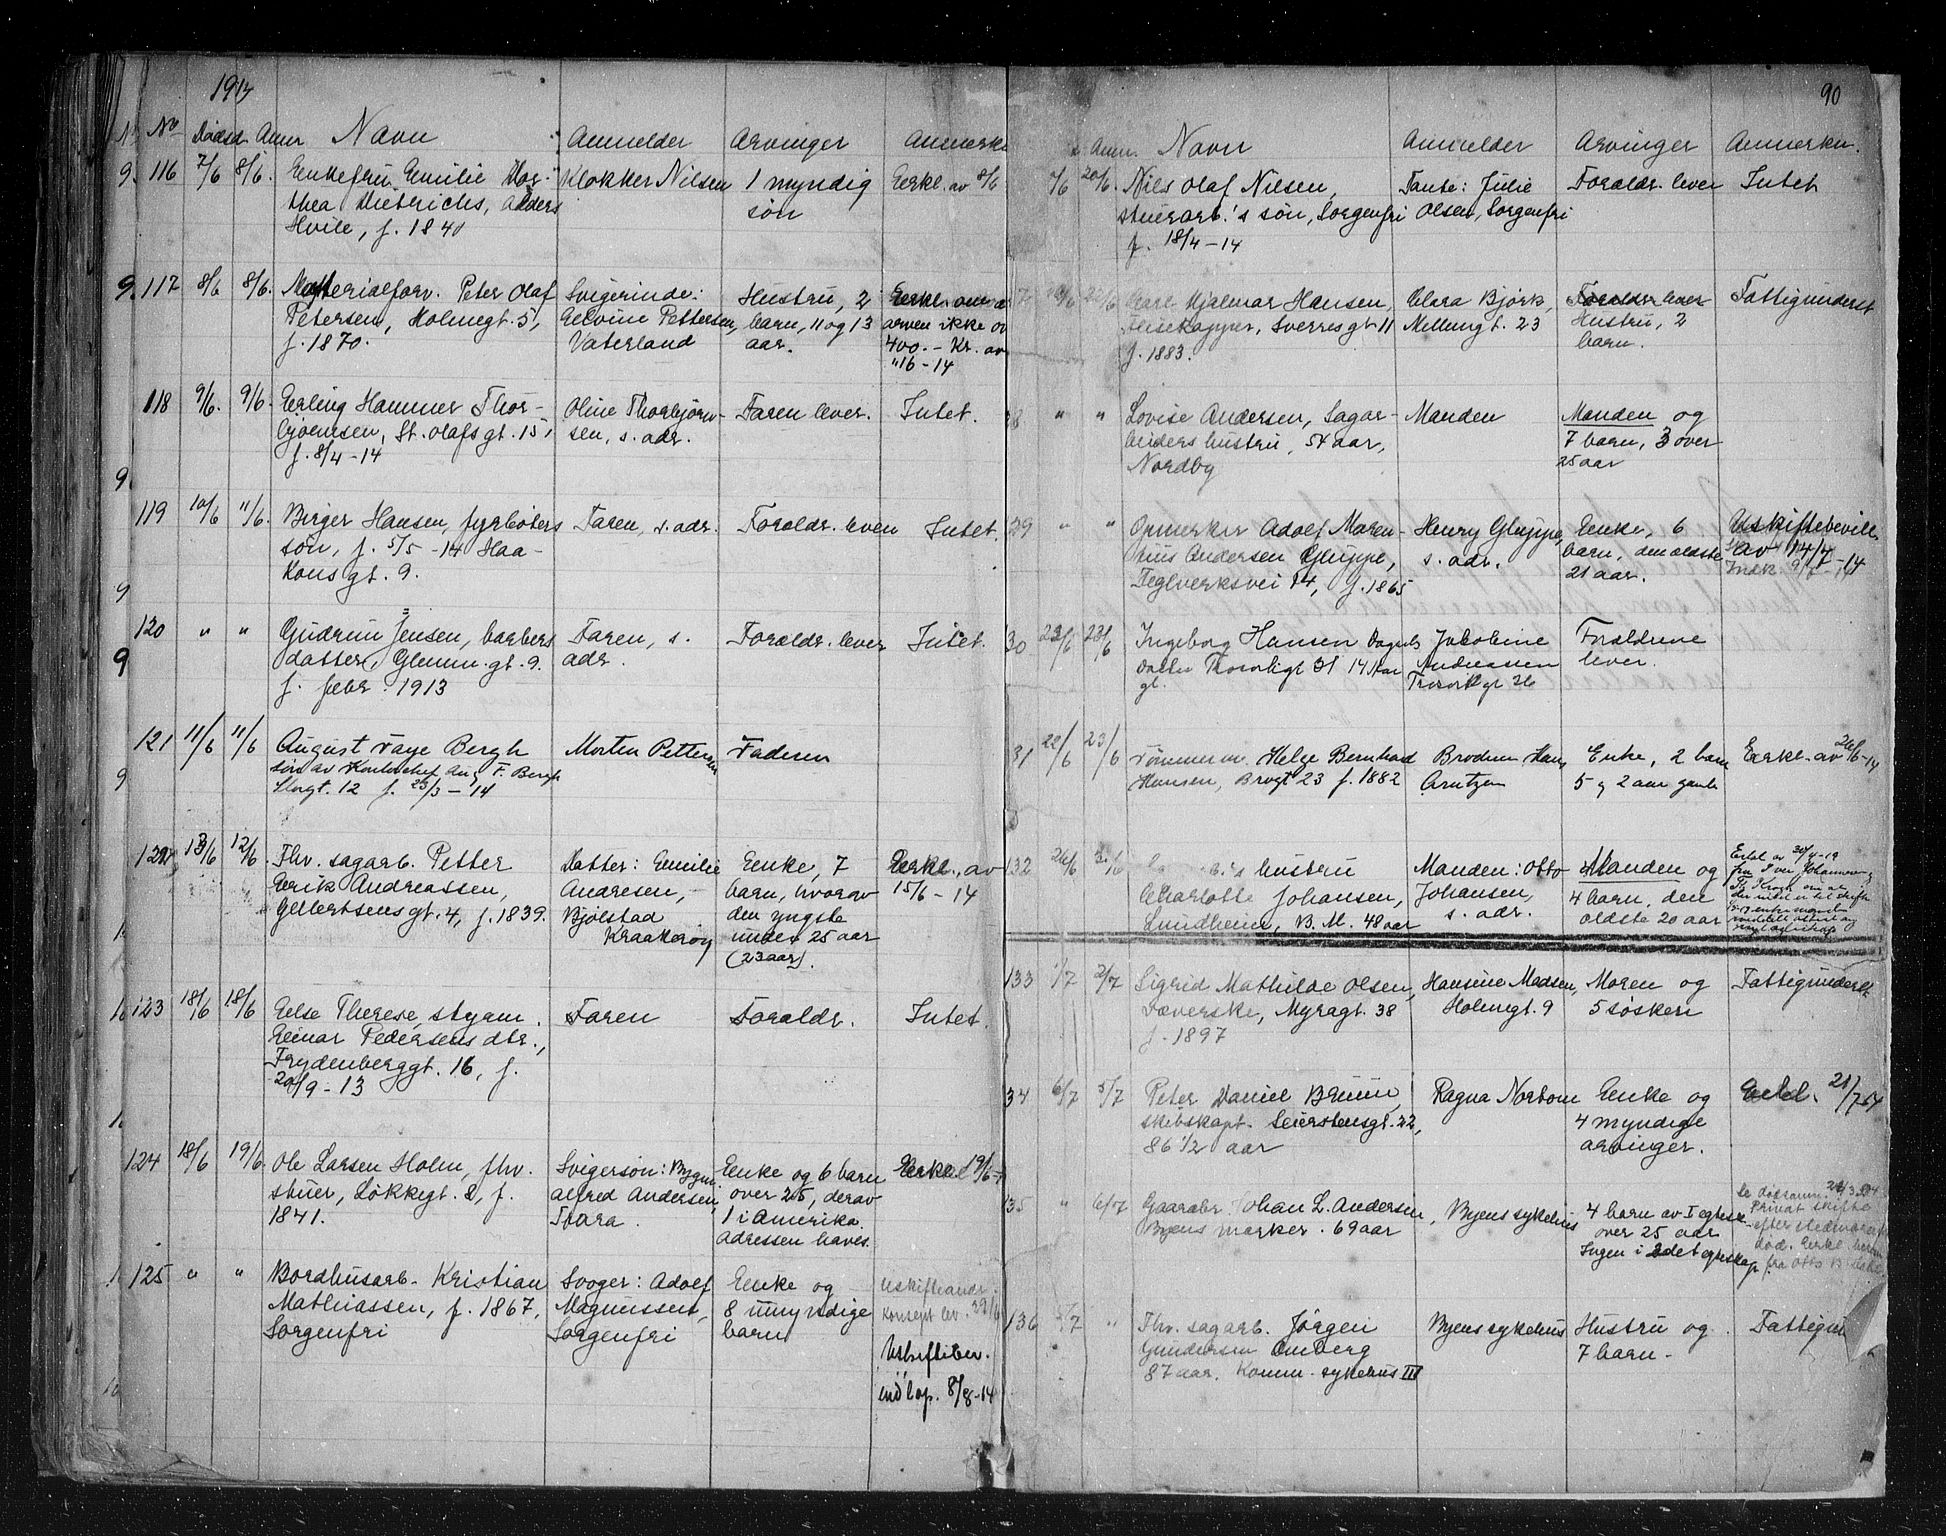 1914
No Dødsd. Anm. Navn Anmelder Arvinger Anmerkn
116 7/6 8/6. Enkefru Emilie Dor- Klokker Nilsen 1 myndig Erkl. av 8/6
thea Dieterichs, Alders søn
Hvile, f. 1840
117 8/6 8/6. Materialforv. Peter Olaf Svigerinde: Hustru, 2 Erkl. om at
Petersen, Holmegt. 5, Elvine Pettersen, barn, 11 og 13 arven ikke ov
f. 1870. Vaterland aar. 400.- Kr. av
"16-14
118 9/6. 9/6. Erling Hammer Thor- Oline Thorbjørn- Faren lever. Intet.
bjørnsen, St. Olafsgt. 15, sen, s. adr.
f. 8/4-14
119 10/6 11/6. Birger Hansen, fyrbøters Faren, s. adr. Foreldr. lever Intet.
søn, f. 5/5-14 Haa-
konsgt. 9.
120 " " Gudrun Jensen, barbers Faren, s. Forældr. lever Intet.
datter, Glemm. gt. 9. adr.
f. febr. 1913
121 11/6 11/6 August Faye Bergh Morten Pettersen Faderen
søn av Kontorchef Aug. F. Bergh
Storgt. 12 f. 23/3-14
122 13/6 12/6. Fhv. sagarb. Petter Datter: Emilie Enke, 7 Erkl. av
Erik Andreassen, Andresen, barn, hvorav 15/6-14
Gellertsensgt. 4, f. 1839. Bjølstad den yngste
Kraakerøy under 25 aar
(23 aar).
123 18/6 18/6 Else Therese, styrm. Faren Foraldr. Intet.
Einar Pedersens dtr.,
Frydenberggt. 16, f.
20/9-13
124 18/6 19/6. Ole Larsen Holm, fhv. Svigersøn: Bygm. Enke og 6 barn Erkl 19/6
stuer, Løkkegt. 2, f. Alfred Andersen, over 25, derav
1841. Thara. 1 i Amerika.
Adressen haves.
125 " " Bordhusarb. Kristian Svoger: Adolf Enke og Uskifteandr.
Mathiassen, f. 1867, Magnussen, 8 umyndige konsept lev. 29/6
Sorgenfri Sorgenfri barn Uskiftebev.
indløp. 8/8-14
90
Anm. Navn Anmelder Arvinger Anmerkn.
20/6. Nils Olaf Nilsen, Tante: Julie Foraldr. lever Intet
stuerarb.'s søn, Sorgenfri Olsen, Sorgenfri
f. 18/4-14
Carl Hjalmar Hansen, Clara Bjørk, Foraldr lever Fattigunderst
heisekapper, Sverresgt 11 Mellumgt. 23 Hustru, 2
f. 1883. barn.
28 " " Lovise Andersen, Sagar- Manden Manden og
beiders hustru, 54 aar, 7 barn, 3 over
Nordby 25 aar
29 " " Opmerker Adolf Maren- Henry Gluppe, Enke, 6 Uskiftebevill.
tius Andersen Gluppe, s. adr. barn, den ældste av 14/7-14
Teglverksvei 14, f. 1865 21 aar.
30 22/6 23/6 Ingeborg Hansen Jakobine Forældrene
datter 14 aar Andreassen lever.
Trosvikgt 26
31 22/6 23/6 Tømmerm. Helge Bernhard Broderen Hans Enke, 2 barn Erkl. av 26/6-14
Hansen, Brogt 23 f. 1882 Arntzen 5 og 2 aar gamle
132 26/6 hustru Manden: Otto Manden og
Charlotte Johansen, Johansen, 4 barn, den
Sundheim, B. M. 48 aar s. adr. ældste 20 aar
133 1/7 2/7 Sigrid Mathilde Olsen, Hansine Madsen, Moren og Fattigunderst
Væverske, Myragt. 38 Holmegt. 9 5 søsken
f. 1897
34 6/7 5/7 Peter Daniel Bruun, Ragna Norbom Enke og Erkl. 21/7 14
skibskapt. Seierstensgt. 22, 4 myndige
86 1/2 aar arvinger.
35 " 6/7 Gaardbr. Johan L. Andersen, Byens sykehus 4 barn av I egtesk. Privat skifte
Byens marker. 69 aar over 25 aar
Ingen i 2det egteskap.
136 5/7 " Fhv. sagarb. Jørgen Byens sykehus Hustru og Fattigun
Gundersen Omberg 7 barn-
87 aar. Komm. sykehus III